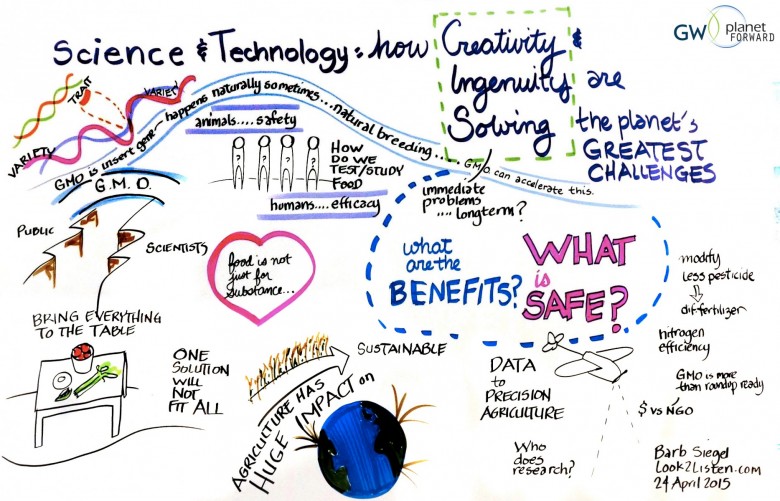 GW planet
FORWARD
Science & Technology: how Creativity &
Ingenuity
Solving
are
the planet's
GREATEST
CHALLENGES
TRAIT
VARIETY
VARIETY
GMO is insert gene - happens naturally sometimes... natural breeding..... GMO can accelerate this.
G.M.O.
animals.... safety
HOW
DO WE
TEST/STUDY
FOOD
? ? ? ?
humans.... efficacy
immediate
problems
.... longterm?
PUBLIC
SCIENTISTS
food is not
just for
substance...
what
are the
BENEFITS?
WHAT
is
SAFE?
modify
less pesticide
dif. fertilizer
nitrogen
efficiency
GMO is more
than roundup ready
$ vs NGO
BRING EVERYTHING
TO THE TABLE
ONE
SOLUTION
WILL
NOT
FIT ALL
SUSTAINABLE
AGRICULTURE HAS
HUGE IMPACT on
DATA
to
PRECISION
AGRICULTURE
Who
does
research?
Barb Siegel
Look2Listen.com
24 April 2015